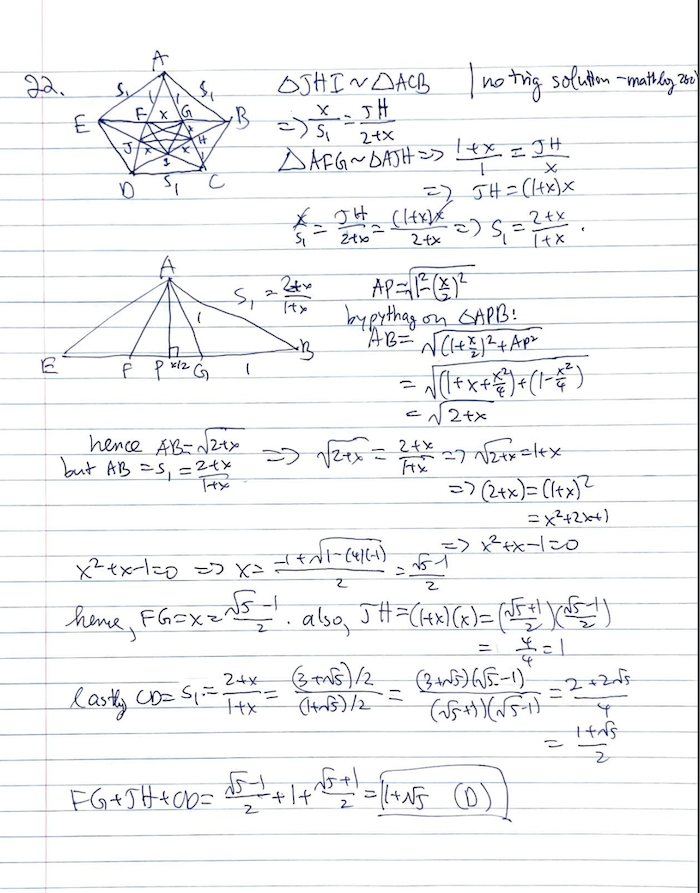 22.
A
S₁ S₁
1 1
E F x G B
J x x H
x I x
D S₁ C
△JHI ~ △ACB | no trig solution - mathboy282
=> x/S₁ = JH/(2+x)
△AFG ~ △AJH => (1+x)/1 = JH/x
=> JH = (1+x)x
x/S₁ = JH/(2+x) = (1+x)x/(2+x) => S₁ = (2+x)/(1+x).
A
S₁ = (2+x)/(1+x)
1
E F P x/2 G 1 B
AP = √(1² - (x/2)²)
by pythag on △APB:
AB = √((1+x/2)² + AP²)
= √((1+x+x²/4) + (1-x²/4))
= √(2+x)
hence AB = √(2+x) => √(2+x) = (2+x)/(1+x) => √(2+x) = 1+x
but AB = S₁ = (2+x)/(1+x)
=> (2+x) = (1+x)²
= x²+2x+1
=> x²+x-1=0
x²+x-1=0 => x = (-1+√(1-(4)(-1)))/2 = (√5-1)/2
hence, FG = x = (√5-1)/2. also, JH = (1+x)(x) = ((√5+1)/2)((√5-1)/2)
= 4/4 = 1
lastly CD = S₁ = (2+x)/(1+x) = ((3+√5)/2)/((1+√5)/2) = (3+√5)(√5-1)/((√5+1)(√5-1)) = (2+2√5)/4
= (1+√5)/2
FG+JH+CD = (√5-1)/2 + 1 + (√5+1)/2 = 1+√5 (D)